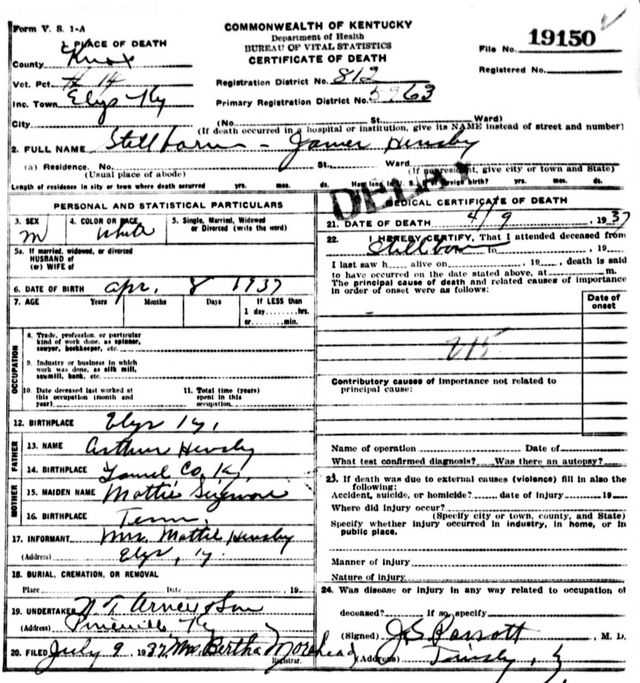 Form V. S. 1-A
COMMONWEALTH OF KENTUCKY
Department of Health
BUREAU OF VITAL STATISTICS
CERTIFICATE OF DEATH
File No. 19150
Registered No.
1. PLACE OF DEATH
County Knox
Vot. Pct. # 14
Inc. Town Elys Ky
City
Registration District No. 812
Primary Registration District No. 5963
(No. St. Ward)
(If death occurred in a hospital or institution, give its NAME instead of street and number)
2. FULL NAME Stillborn - James Hensby
(a) Residence. No. St. Ward
(Usual place of abode) (If nonresident, give city or town and State)
Length of residence in city or town where death occurred yrs. mos. ds. How long in U. S. if of foreign birth? yrs. mos. ds.
PERSONAL AND STATISTICAL PARTICULARS
3. SEX M
4. COLOR OR RACE White
5. Single, Married, Widowed or Divorced (write the word)
5a. If married, widowed, or divorced
HUSBAND of
(or) WIFE of
6. DATE OF BIRTH Apr. 8 1937
7. AGE Years Months Days If LESS than
1 day hrs.
or min.
OCCUPATION
8. Trade, profession, or particular
kind of work done, as spinner,
sawyer, bookkeeper, etc.
9. Industry or business in which
work was done, as silk mill,
sawmill, bank, etc.
10. Date deceased last worked at
this occupation (month and
year)
11. Total time (years)
spent in this
occupation
12. BIRTHPLACE Elys Ky.
FATHER
13. NAME Arthur Hensby
14. BIRTHPLACE Laurel Co, Ky,
MOTHER
15. MAIDEN NAME Mattie
16. BIRTHPLACE Tenn.
17. INFORMANT Mrs. Mattie Hensby
(Address) Elys, Ky.
18. BURIAL, CREMATION, OR REMOVAL
Place Date 19
19. UNDERTAKER Son
(Address) Pineville Ky
20. FILED July 9 1937 Mrs. Bertha Morehead
Registrar.
DELAY
MEDICAL CERTIFICATE OF DEATH
21. DATE OF DEATH 4/9, 1937
22. I HEREBY CERTIFY, That I attended deceased from
Stillborn to , 19
I last saw h alive on , 19 , death is said
to have occurred on the date stated above, at m.
The principal cause of death and related causes of importance
in order of onset were as follows:
Date of
onset
Contributory causes of importance not related to
principal cause:
Name of operation Date of
What test confirmed diagnosis? Was there an autopsy?
23. If death was due to external causes (violence) fill in also the
following:
Accident, suicide, or homicide? date of injury 19
Where did injury occur?
(Specify city or town, county, and State)
Specify whether injury occurred in industry, in home, or in
public place.
Manner of injury
Nature of injury
24. Was disease or injury in any way related to occupation of
deceased? If so, specify
(Signed) J S Parrott M. D.
(Address) Tinsley, Ky